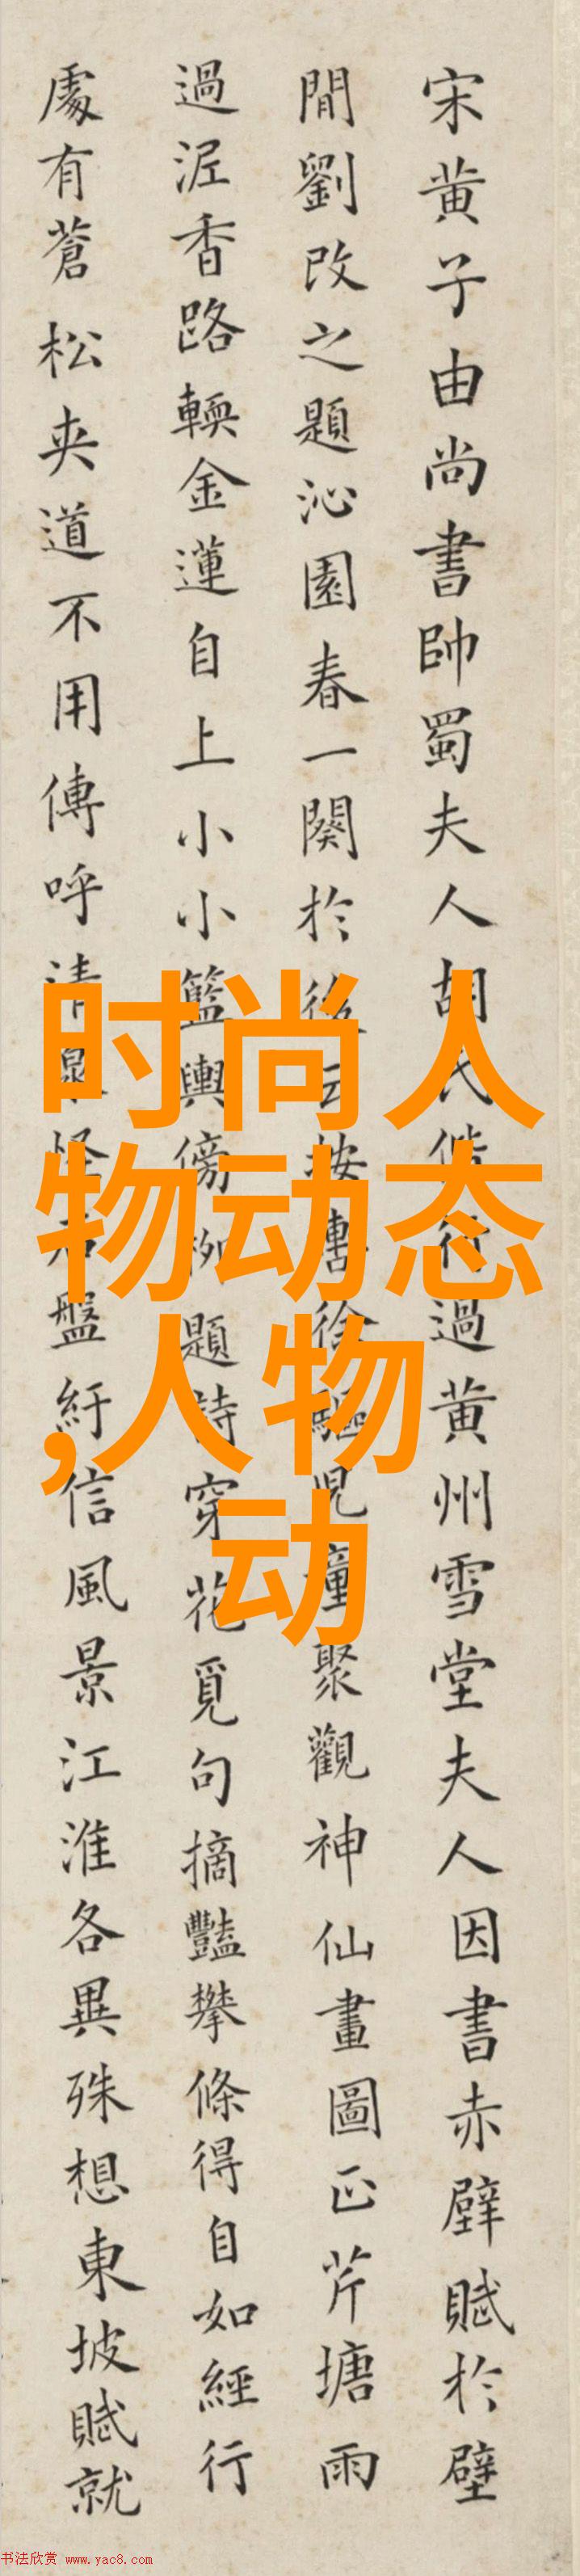 宋黄子由尚書帥蜀夫人胡氏偕行過黄州雪堂夫人因書赤壁賦於壁
間劉改之題沁園春一闋於後云按轡徐驅兒童聚觀神仙畫圖正芹塘雨
過泥香路輭金蓮自上小小籃輿傍柳題詩穿花覓句摘豔攀條得自如經行
處有蒼松夾道不用傳呼清泉怪石盤紆信風景江淮各異殊想東坡賦就
时尚人
物动态
,人物
动
书法欣赏 www.yac8.com